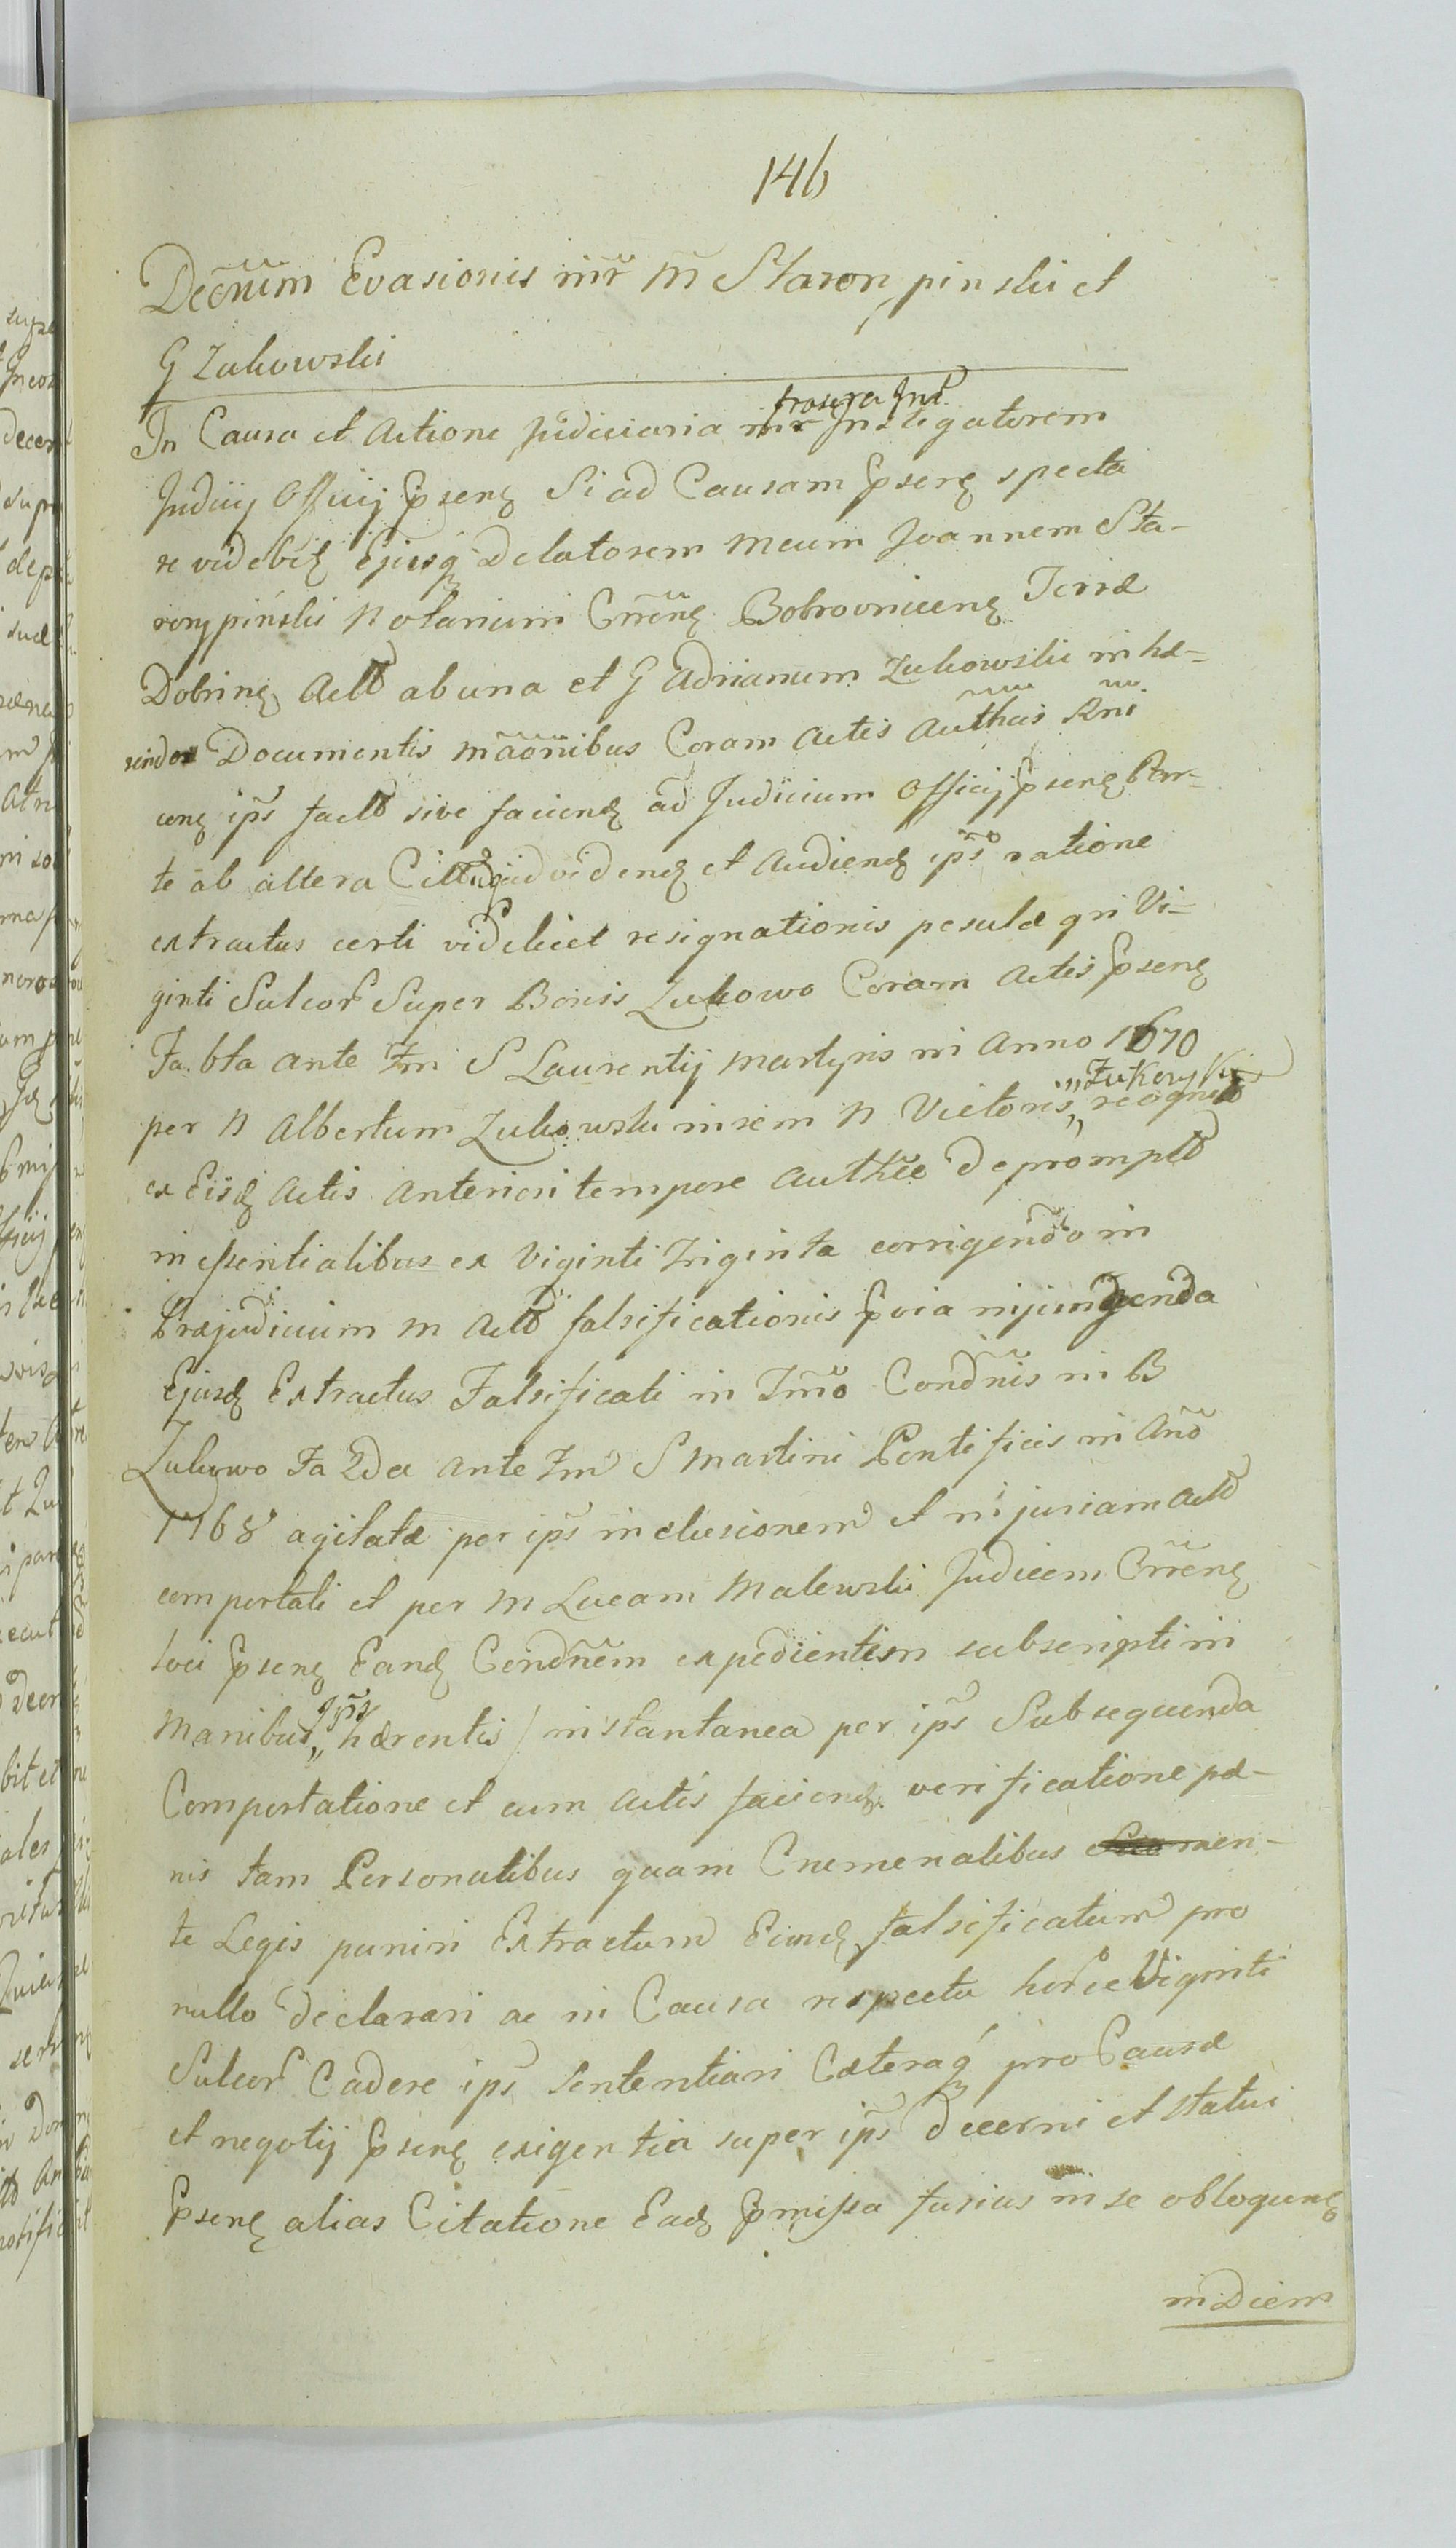 146
Decrum Evasionis intr M Starorypinski et
G Zukowski
In Causa et Actione Judiciaria intr Instigatorem
Judicij Officij Pnsenę Si ad Causam Pnsenę specta
re videbitę Ejusq Delatorem Meum Joannem Sta-
rorypinski Notarium Crrenę Bobrovnicenę Terræ
Dobrinę Actt ab una et G Adrianum Zukowski inhæ-
rendo Documentis Mãonibus Coram Actis Authcis Rni
cenę ips factt sive faciendę ad Judicium Officij Pnsenę Par-
te ab altera Citt ad videndę et Audiendę ipso ratione
extractus certi videlicet resignationis pesulæ gri Vi-
ginti Sulcor Super Bonis Zukowo Coram Actis Pnsenę
Fa. bta ante Fm S Laurentij Martyris in Anno 1670
per N Albertum Zukowski in rem N Victoris „Zukowski recognitt
ex Eisdę Actis Anteriori tempore Authce depromptt
in essentialibus ex Viginti Triginta corrigendo in
Præjudicium M Actt falsificationis Pvia injungenda
Ejusdę Extractus Falsificati in Tmo Condnis in B
Zukowo Fa 2da ante Fm S Martini Pontificis in Ano
1768 agitatæ per ips in elusionem et injuriam Actt
comportati et per M Lucam Malewski Judicem Crrenę
loci Pnsenę Eandę Condnem expedientem subscripti in
Manibus „ips hærentis / instantanea per ips Subsequenda
Comportatione et cum Actis faciendę verificatione pæ-
nis tam Personalibus quam Crumenalibus men-
te Legis puniri Extractum Eundę falsificatum pro
nullo declarari ac in Causa respectu horce Viginti
Sulcor Cadere ips Sententiari Cæteraq pro Causæ
et negotij Pnsenę exigentia super ips decerni et statui
Pnsenę alias Citatione Eadę Pmissa furius in se obloquenę
in Diem